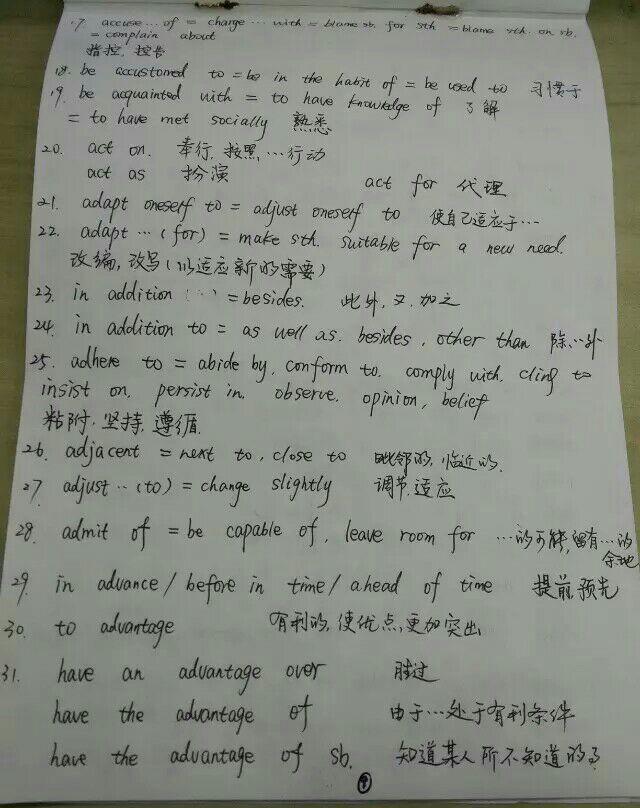 17. accuse … of = charge … with = blame sb. for sth = blame sth. on sb.
= complain about
指控, 控告
18. be accustomed to = be in the habit of = be used to 习惯于
19. be acquainted with = to have knowledge of 了解
= to have met socially 熟悉
20. act on. 奉行, 按照…行动
act as 扮演 act for 代理
21. adapt oneself to = adjust oneself to 使自己适应于…
22. adapt … (for) = make sth. suitable for a new need.
改编, 改写 (以适应新的需要)
23. in addition (…) = besides. 此外, 又, 加之
24. in addition to = as well as. besides, other than 除…外
25. adhere to = abide by, conform to, comply with, cling to
insist on, persist in, observe, opinion, belief
粘附, 坚持, 遵循
26. adjacent = next to, close to 毗邻的, 临近的.
27. adjust … (to) = change slightly 调节, 适应
28. admit of = be capable of, leave room for …的可能, 留有…的
余地
29. in advance / before in time / ahead of time 提前 预先
30. to advantage 有利的, 使优点, 更加突出
31. have an advantage over 胜过
have the advantage of 由于…处于有利条件
have the advantage of sb. 知道某人所不知道的